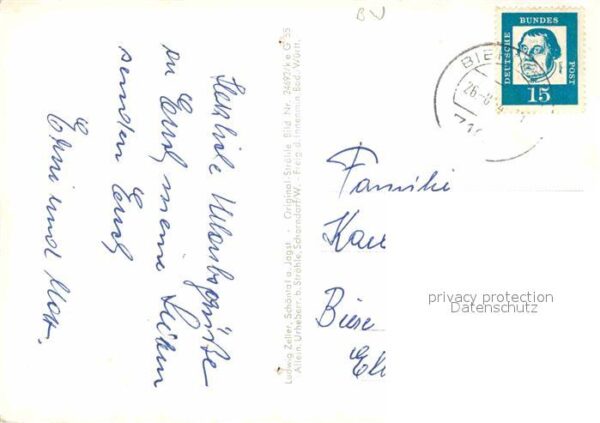 BV
DEUTSCHE
BUNDES
POST
15
BIE
26.-8.
71
Herzliche Urlaubsgrüße
an Euch meine Lieben
senden Euch
Erni und Max.
Ludwig Zeller, Schöntal a. Jagst - Original-Strähle Bild Nr. 24692/k e G 55
Allein. Urheberr. b. Strähle, Schorndorf/W. - Freig. d. Innenmin. Bad.-Württ.
Familie
Kau
Biese
privacy protection
Datenschutz